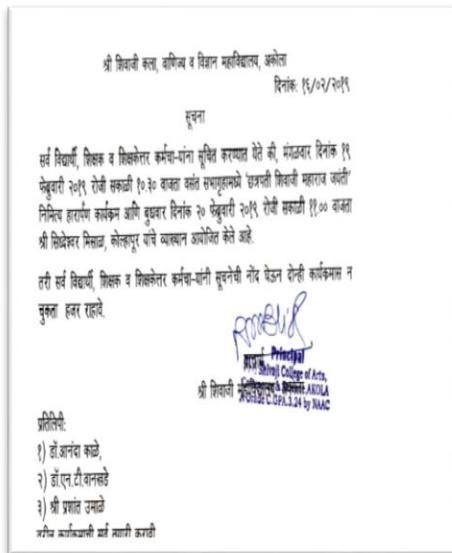 श्री शिवाजी कला, वाणिज्य व विज्ञान महाविद्यालय, अकोला
दिनांक: १६/०२/२०१९
सूचना
सर्व विद्यार्थी, शिक्षक व शिक्षकेत्तर कर्मचा-यांना सूचित करण्यात येते की, मंगळवार दिनांक १९
फेब्रुवारी २०१९ रोजी सकाळी १०.३० वाजता वसंत सभागृहामध्ये 'छत्रपती शिवाजी महाराज जयंती'
निमित्य हारार्पण कार्यकम आणि बुधवार दिनांक २० फेब्रुवारी २०१९ रोजी सकाळी ११.०० वाजता
श्री सिध्देश्वर मिसाळ, कोल्हापुर यांचे व्याख्यान आयोजित केले आहे.
तरी सर्व विद्यार्थी, शिक्षक व शिक्षकेत्तर कर्मचा-यांनी सूचनेची नोंद घेऊन दोन्ही कार्यकमास न
चुकता हजर राहावे.
प्राचार्य
Principal
Shivaji College of Arts,
श्री शिवाजी महाविद्यालय, अकोला
AKOLA
A Grade C.GPA.3.24 by NAAC
प्रतिलिपी:
१) डॉ.आनंदा काळे,
२) डॉ.एन.टी.वानखडे
३) श्री प्रशांत उमाळे
वरील कार्यकमाची सर्व तयारी करावी